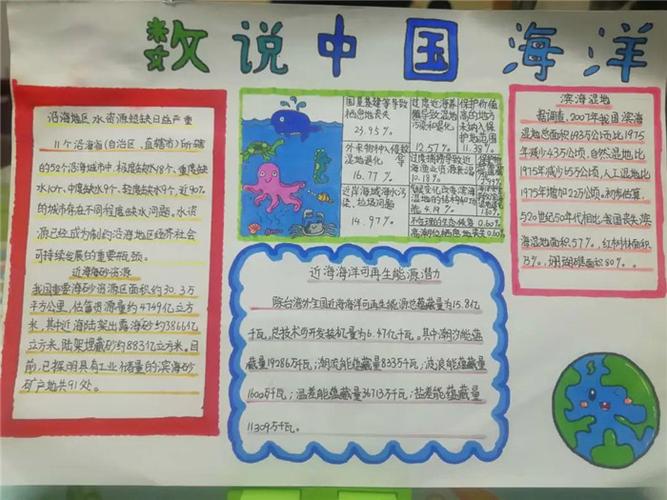 数说中国海洋
沿海地区水资源短缺日益严重
11个沿海省(自治区、直辖市)所辖
的52个沿海城市中,极度缺水18个,重度缺
水10个,中度缺水9个,轻度缺水9个,近90%
的城市存在不同程度缺水问题,水资
源已经成为制约沿海地区经济社会
可持续发展的重要瓶颈。
近海海砂资源
我国重要海砂资源区面积约30.3万
平方公里,估算资源量约4749亿立方
米,其中近海陆架出露海砂约3866亿
立方米,陆架埋藏砂约883亿立方米。目
前,已探明具有工业储量的滨海砂
矿产地共91处。
围垦基建等导致
栖息地丧失
23.95%
外来物种入侵导致
湿地退化
16.77%
近岸海域海水污
染,垃圾问题
14.97%
过度近海养
殖导致湿地
污染和退化
12.57%
保护价值
高的地方
未纳入保
护地范围
11.38%
过度捕捞导致近
海渔业资源衰退
10.18%
气候变化改变滨海
湿地的结构和功
能 4.19%
不合理的生态修复 0.60%
高潮位栖息地丧失 0.60%
近海海洋可再生能源潜力
除台海外全国近海海洋可再生能源总蕴藏量为15.8亿
千瓦,总技术可开发装机量为6.47亿千瓦。其中潮汐能蕴
藏量19286万千瓦;潮流能蕴藏量833万千瓦;波浪能蕴藏量
1600万千瓦;温差能蕴藏量36713万千瓦;盐差能蕴藏量
11309万千瓦。
滨海湿地
据调查,2007年我国滨海
湿地总面积693万公顷比1975
年减少43万公顷,自然湿地比
1975年减少65万公顷,人工湿地比
1975年增加22万公顷。初步估算,
与20世纪50年代相比我国丧失滨
海湿地面积57%,红树林面积
73%,珊瑚礁面积80%。